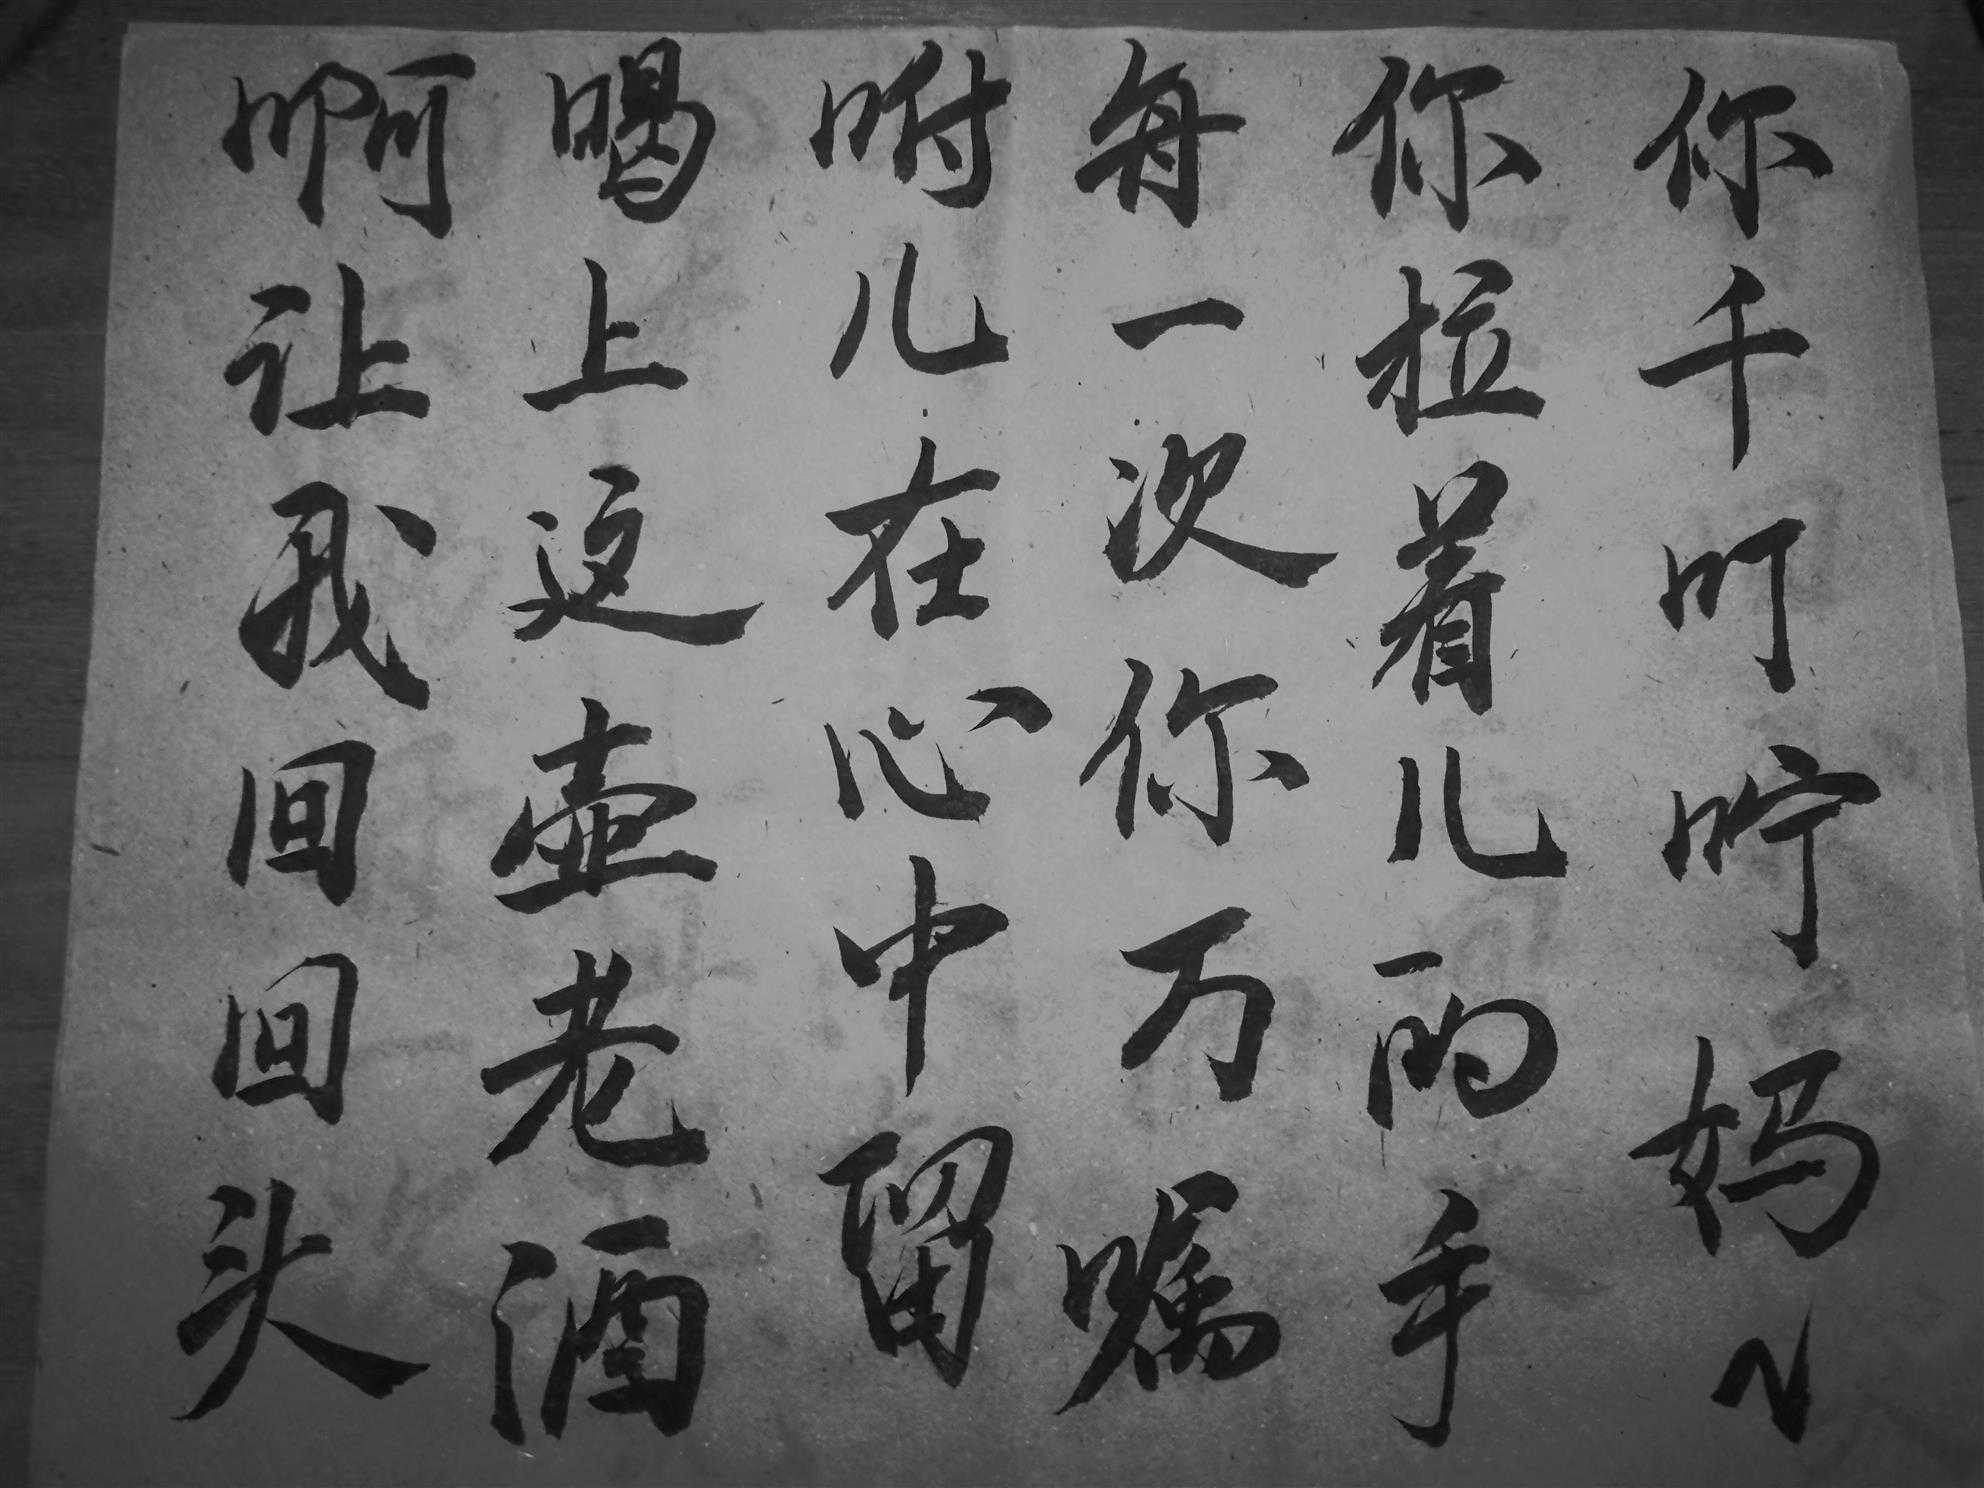 你千叮咛妈妈
你拉着儿的手
每一次你万嘱
咐儿在心中留
喝上这壶老酒
啊让我回回头